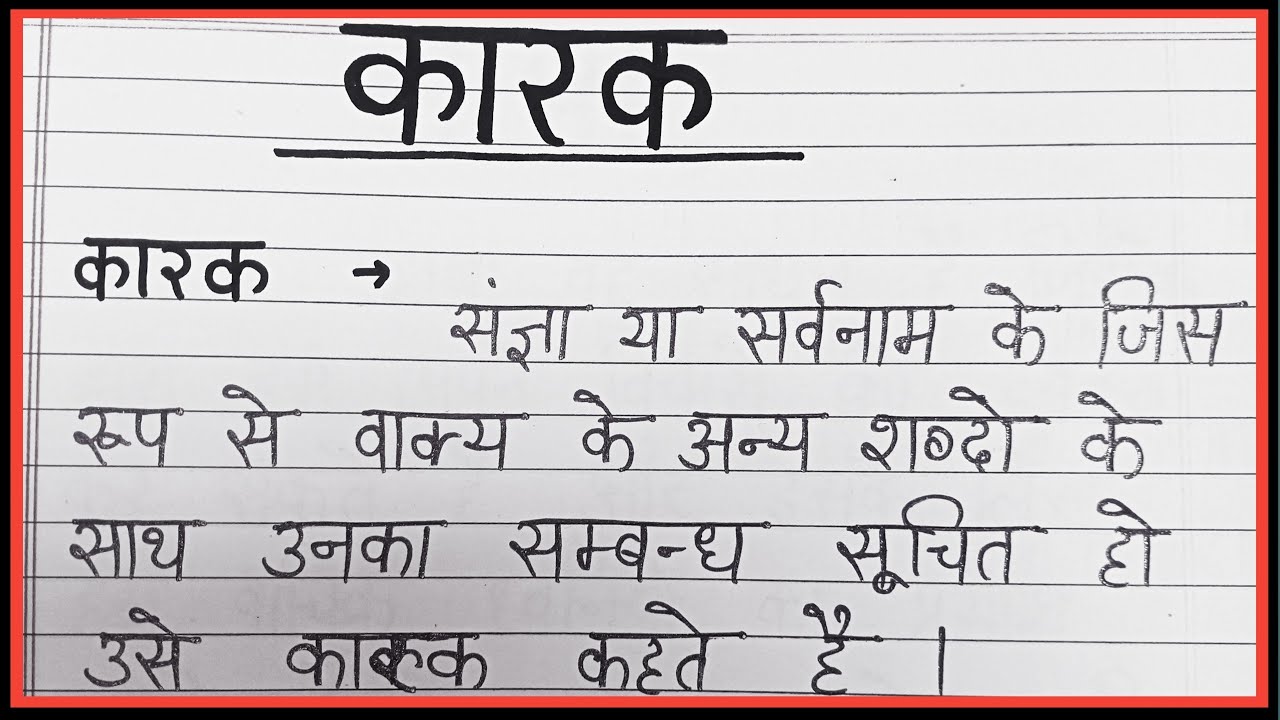 कारक
कारक → संज्ञा या सर्वनाम के जिस
रूप से वाक्य के अन्य शब्दो के
साथ उनका सम्बन्ध सूचित हो
उसे कारक कहते है ।